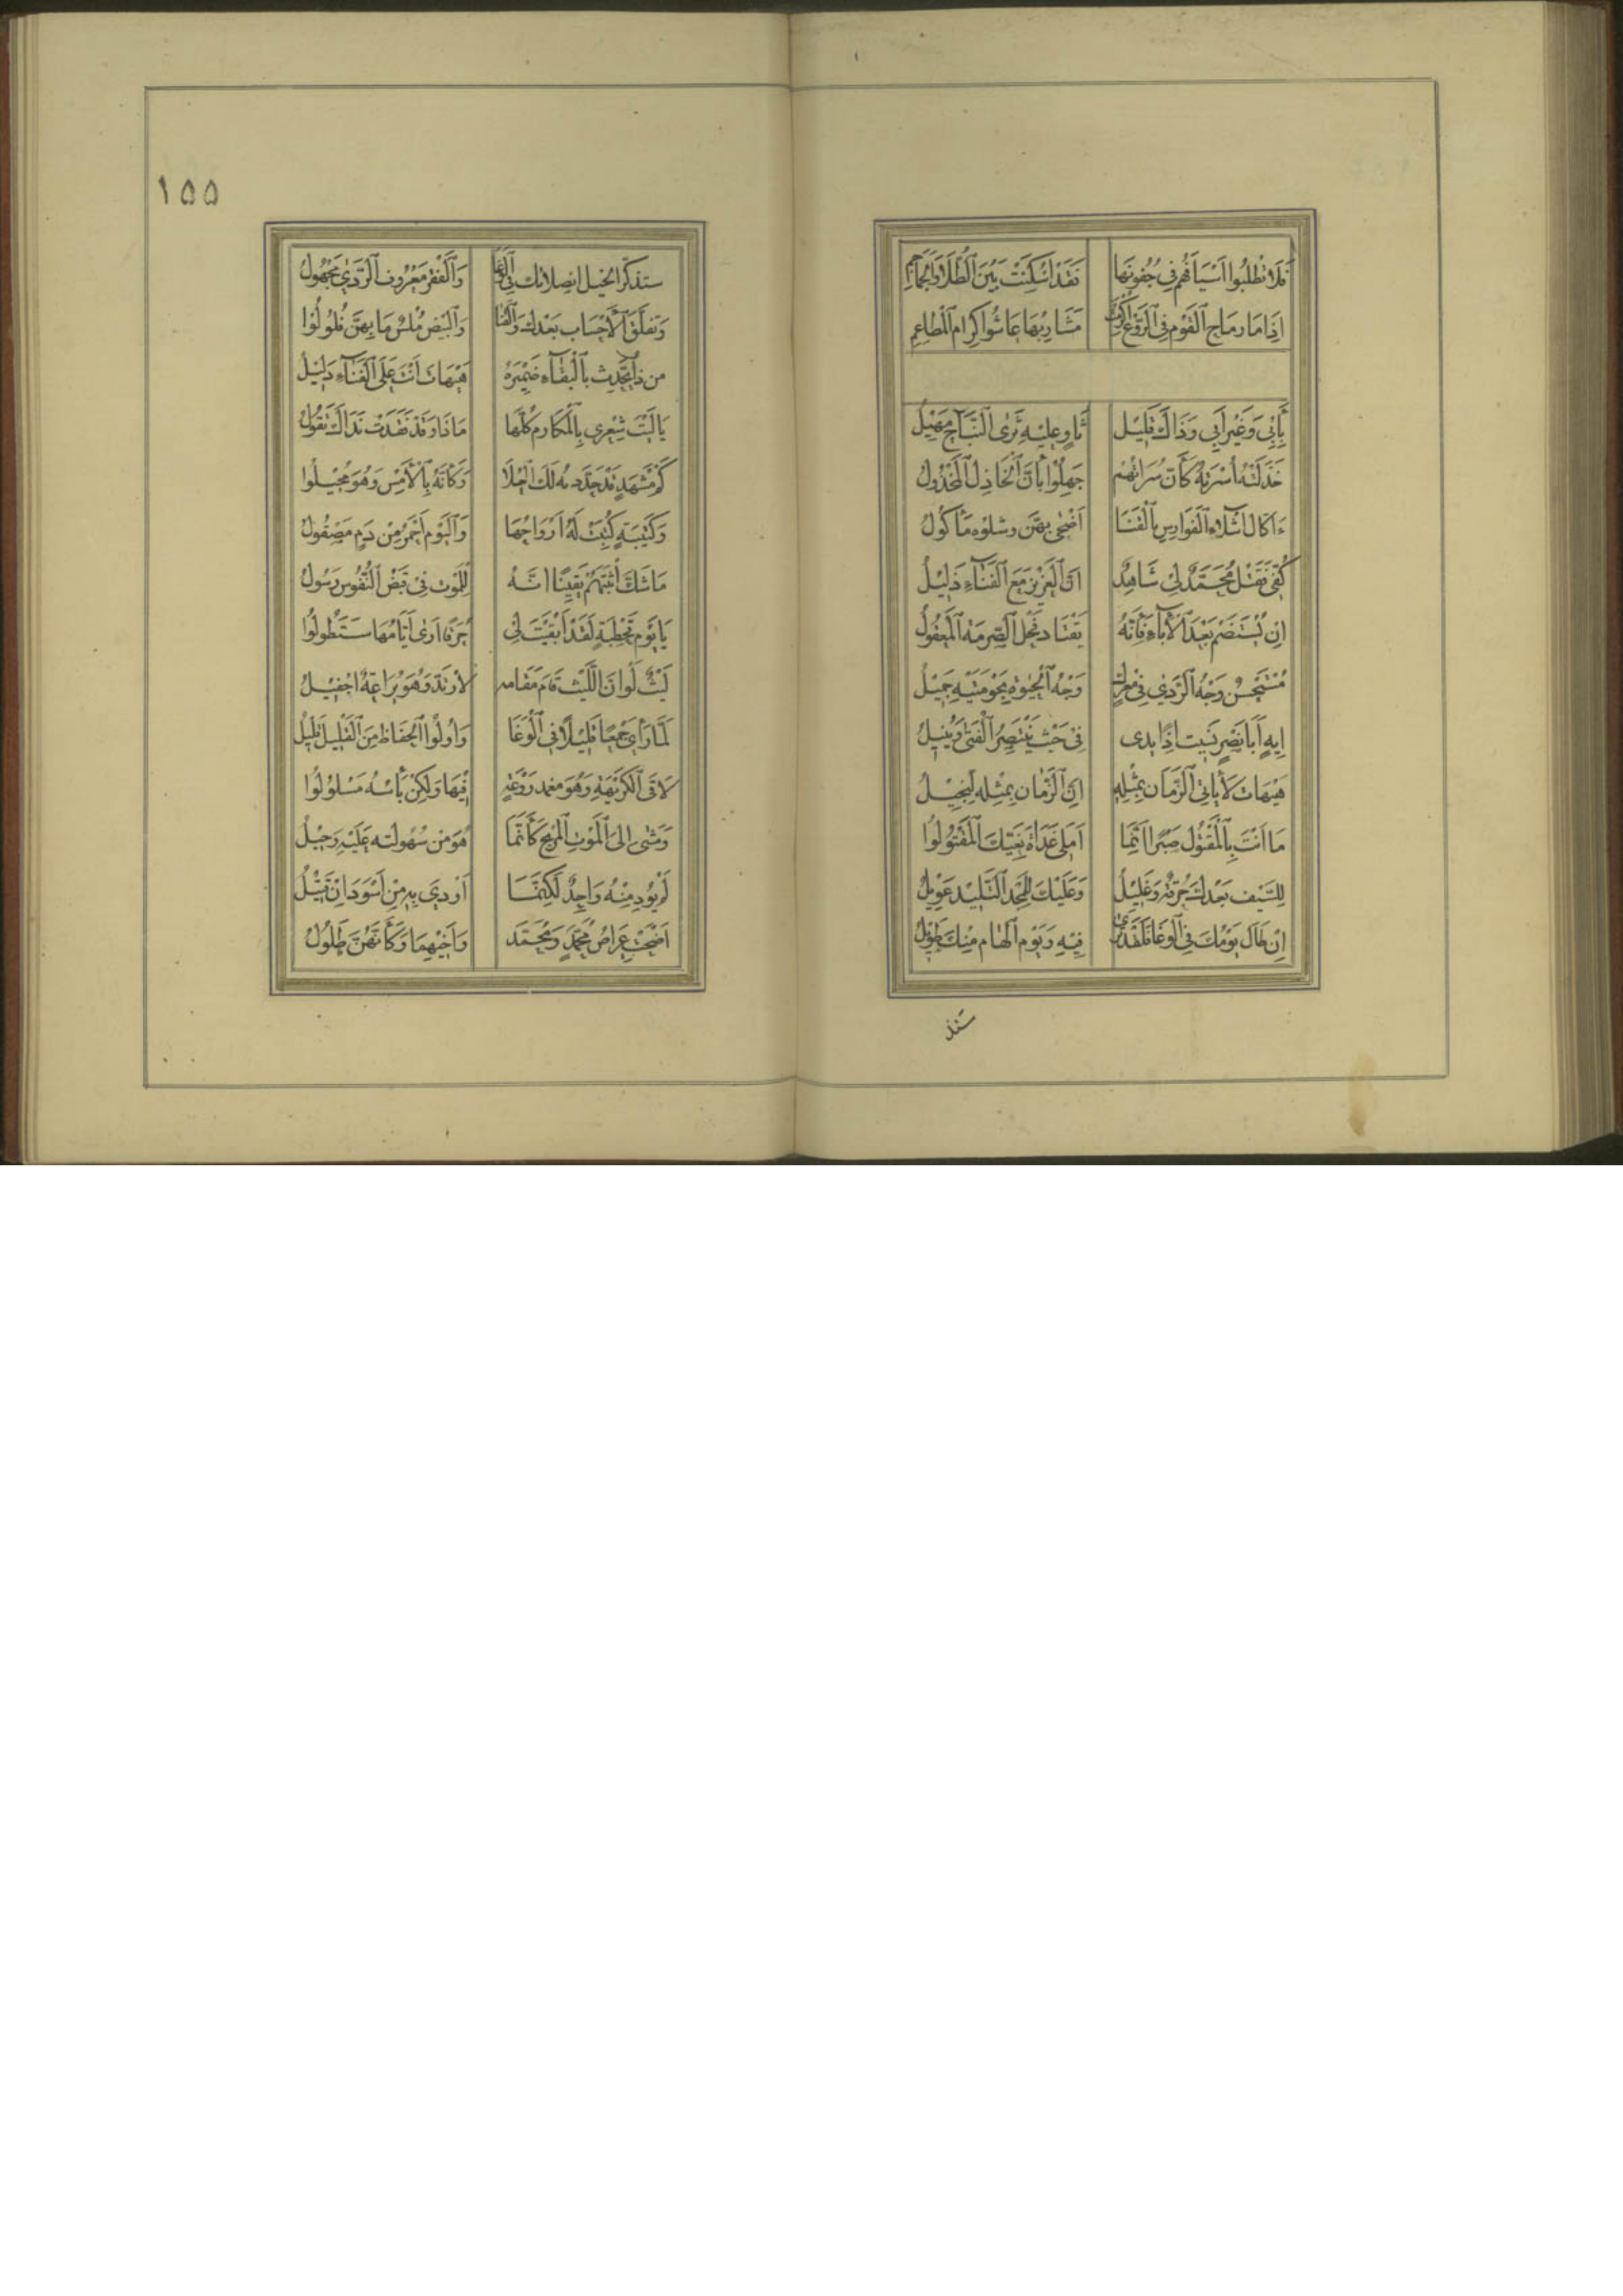 فَلَا تَطْلُبُوا اَسْيَافَهُم فِي جُفُونِهَا فَقَدْ اُسْكِنَتْ بَيْنَ الطُّلَا وَالجَمَاجِمِ
اِذَا مَا رِمَاحِ القَوْمِ فِي الرَّوْعِ اَكْرَهَتْ مَشَارِبُهَا عَاشُوا كِرَامَ المَطَاعِمِ
بِأَبِي وَغَيْرِ اَبِي وَذَاكَ قَلِيْل ثَاوٍ عَلَيْهِ ثَرَى النِّبَاجِ مَهِيْلُ
خَذَلَتْهُ اُسْرَتُهُ كَأَنَّ سُرَاتَهُم جَهِلُوا بِأَنَّ الخَاذِلَ المَخْذُولُ
ءَاكَالُ اَشْلَاءِ الفَوَارِسِ بِالقَنَا اَضْحَى بِهِنَّ وشلوُه مَأكُولُ
كُفِّي فَقَتْلُ مُحَمَّدٌ لِي شَاهِدٌ اَنَّ العَزِيزَ مَعَ الفَنَاءِ ذَلِيْلُ
اِنْ يُسْتَضَم بَعْدَ الأبَاءِ فَاِنَّهُ يَقْتَادُ فَحْلَ الصِّرمَةِ المَعْقُولُ
مُسْتَحْسِنٌ وَجْهَ الرَّدَي فِي مَعْرَكٍ وَجْهُ الحَيوةِ بِحَوْمَتَيْهِ جَمِيْلُ
اِيهٍ اَبَا نَصْرٍ نَسِيتُ اِذًا يَدِى فِي حَيْثُ يَنْتَصِرُ الفَتَى وَيُنِيْلُ
هَيْهَاتَ لَا يَاتِي الزَّمَانُ بِمِثْلِهِ اِنَّ الزَّمَانَ بِمِثْلِهِ لَبَخِيْلُ
مَا اَنْتَ بِالمَقْتُولِ صَبْرًا اِنَّمَا اَمَلِى غَدَاةَ نَعِيِّكَ المَقْتُولُوا
لِلسَّيْفِ بَعْدَكَ حُرْقَةٌ وَغَلِيْلُ وَعَلَيْكَ لِلْمَجْدِ التَّلِيْدِ عَوِيْلُ
اِنْ طَالَ يَوْمُكَ فِي الوَغَا فَلَقَدْ تَرَى فِيْهِ وَيَوْمُ الهَامِ مِنْكَ طَوِيْلُ
ستذ
١٥٥
ستذكر الخيل انصلاتك فِي الوَغَا وَالقَفْرُ مَعْرُوفُ الرَّدَي مَجْهُولُ
وَتفلّل الأحْسَابُ بَعْدَكَ وَالقَنَا وَالبِيْضُ مُلْسٌ مَا بِهِنَّ فُلُولُوا
من ذَا يُحَدِّثُ بِالبَقَاءِ ضَمِيْرَهُ هَيْهَاتَ اَنْتَ عَلَى الفَنَاءِ دَلِيْلُ
يَا لَيْتَ شِعْرِى بِالمَكَارِمِ كُلِّهَا مَاذَا وَقَدْ فَقَدَتْ نَدَاكَ تَقُوْلُ
كَمْ مَشْهَدٍ قَدْ جَدَّدتهُ لَكَ العُلَا وَكَأنَّهُ بِالأمْسِ وَهُوَ مُحِيْلُوا
وَكَتِيْبَةٍ كُتِبَتْ لَهُ اَرْوَاحُهَا وَاليَوْمُ اَحْمَرُ مِنْ دَمٍ مَصْقُولُ
مَا شَكَّ اَثْبَتَهُمْ يَقِيْنًا اَنَّهُ لِلْمَوْتِ فِي قَبْضِ النُّفُوسِ رَسُولُ
يَا يَوْمَ قَحْطَبَةٍ لَقَدْ اَبْقَيْتَ لِي حُرَقًا اَرَى اَيَّامُهَا سَتَطُولُوا
لَيْثٌ لَوْ اَنَّ اللَّيْثَ قَامَ مَقَامَه لَأرْتَدَّ وَهُوَ يَرَاعَةٌ اِجْفِيْلُ
لَمَّا رَأى جَمْعًا قَلِيْلًا فِي الوَغَا وَاُولُوا الحِفَاظِ مِنَ القَلِيْلِ قَلِيْلُ
لَاقَى الكَرِيْهَةِ وَهُوَ مغمد رَوْعِهِ فِيْهَا وَلَكِنْ بَأسُهُ مَسْلُولُوا
وَمَشَى اِلَى المَوْتِ المُرِيحِ كَأنَّمَا هُوَ مِن سُهُولَتِهِ عَلَيْهِ وَحِيْلُ
لَمْ يُودِ مِنْهُ وَاحِدٌ لَكِنَّمَا اَوْدَي بِهِ مِنْ اَسْوَدَانِ قَتِيْلُ
اَضْحَتْ عِرَاصُ مُحَمَّدٍ وَمُحَمَّد وَاَخِيْهِمَا وَكَأنَّهُنَّ طُلُولُ